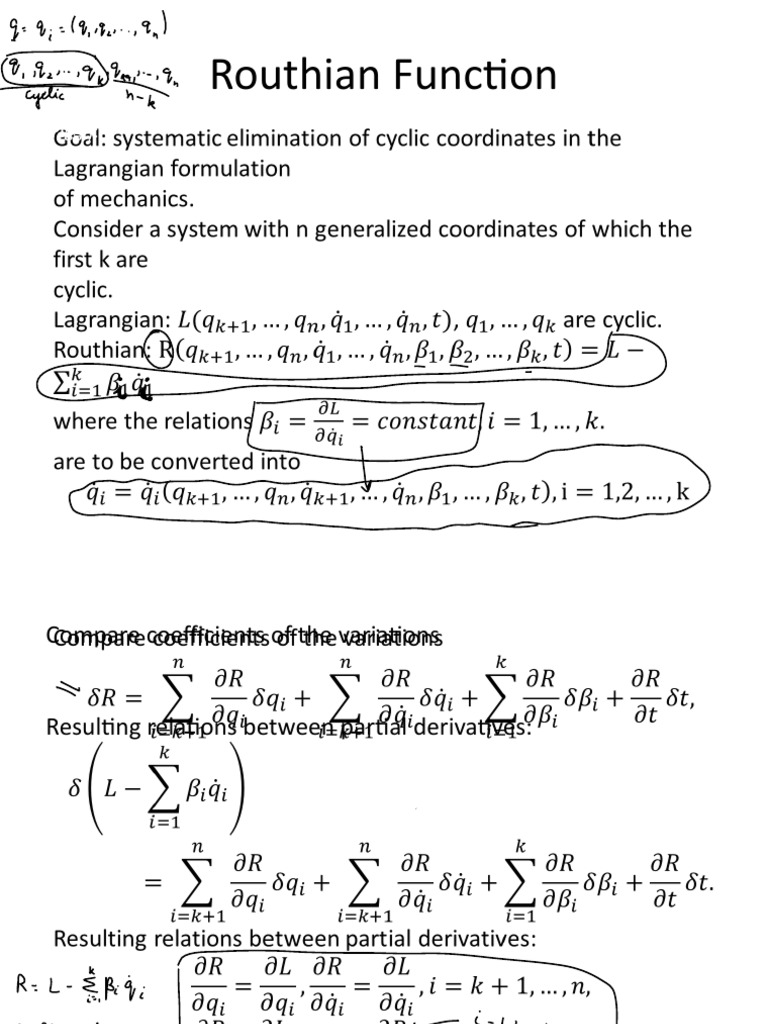 q = q_i = (q_1, q_2, ..., q_n)
q_1, q_2, ..., q_k, q_{k+1}, ..., q_n
cyclic n-k
Routhian Function
Goal: systematic elimination of cyclic coordinates in the
Lagrangian formulation
of mechanics.
Consider a system with n generalized coordinates of which the
first k are
cyclic.
Lagrangian: L(q_{k+1}, …, q_n, q̇_1, …, q̇_n, t), q_1, …, q_k are cyclic.
Routhian: R(q_{k+1}, …, q_n, q̇_1, …, q̇_n, β_1, β_2, …, β_k, t) = L −
∑_{i=1}^k β_i q̇_i
where the relations β_i = ∂L/∂q̇_i = constant, i = 1, …, k.
are to be converted into
q̇_i = q̇_i(q_{k+1}, …, q_n, q̇_{k+1}, …, q̇_n, β_1, …, β_k, t), i = 1,2, …, k
Compare coefficients of the variations
Compare coefficients of the variations
δR = ∑_{i=k+1}^n ∂R/∂q_i δq_i + ∑_{i=k+1}^n ∂R/∂q̇_i δq̇_i + ∑_{i=1}^k ∂R/∂β_i δβ_i + ∂R/∂t δt,
Resulting relations between partial derivatives:
δ(L − ∑_{i=1}^k β_i q̇_i)
= ∑_{i=k+1}^n ∂R/∂q_i δq_i + ∑_{i=k+1}^n ∂R/∂q̇_i δq̇_i + ∑_{i=1}^k ∂R/∂β_i δβ_i + ∂R/∂t δt.
Resulting relations between partial derivatives:
R = L - ∑_{i=1}^k β_i q̇_i ∂R/∂q_i = ∂L/∂q_i, ∂R/∂q̇_i = ∂L/∂q̇_i, i = k + 1, …, n,